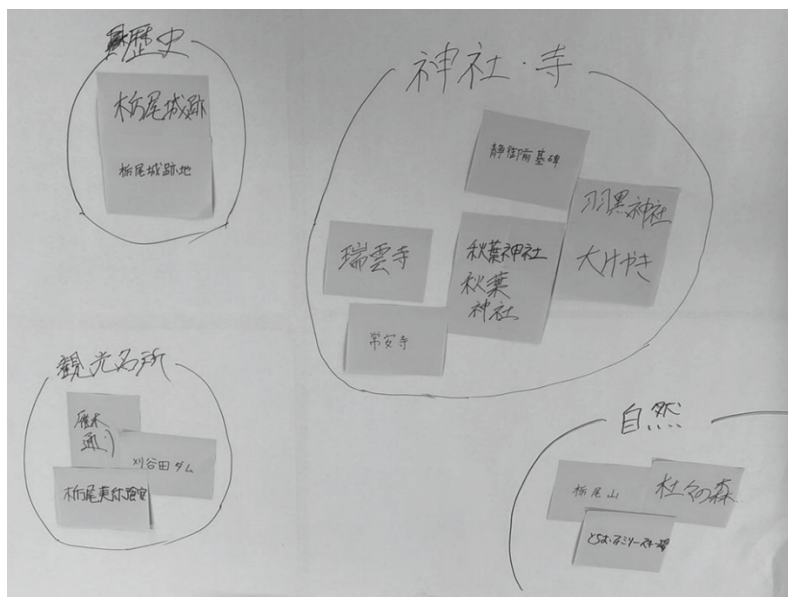 歴史
栃尾城跡
栃尾城跡地
神社・寺
静御前墓碑
羽黒神社
大けやき
瑞雲寺
秋葉神社
秋葉
神社
常安寺
観光名所
雁木
通り
刈谷田ダム
栃尾美術館
自然
栃尾山
杜々の森